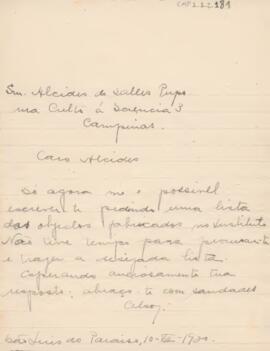 CMP 2.1.2.2 184
Snr. Alcides de Salles Pupo
rua Culto á Sciencia 3
Campinas.
Caro Alcides
Só agora me é possivel
escrever-te pedindo uma lista
dos objectos fabricados no Instituto
Não tive tempo para procurar-te
e trazer a desejada lista.
Esperando anciosamente tua
resposta, abraça-te com saudades
Celso.
São Luis do Paraiso, 10-VII-1930.